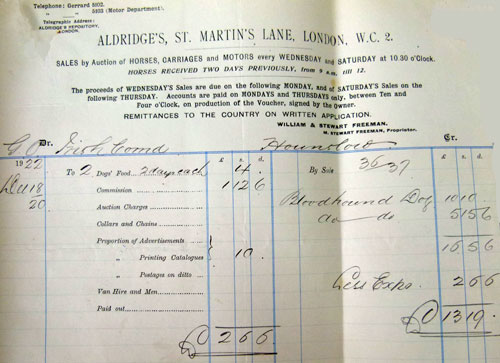 Telephone: Gerrard 5102.
" 5103 (Motor Department).
Telegraphic Address:
ALDRIDGE'S REPOSITORY,
LONDON.
ALDRIDGE'S, ST. MARTIN'S LANE, LONDON, W.C. 2.
SALES by Auction of HORSES, CARRIAGES and MOTORS every WEDNESDAY and SATURDAY at 10.30 o'Clock.
HORSES RECEIVED TWO DAYS PREVIOUSLY, from 9 a.m. till 12.
The proceeds of WEDNESDAY'S Sales are due on the following MONDAY, and of SATURDAY'S Sales on the
following THURSDAY. Accounts are paid on MONDAYS and THURSDAYS only, between Ten and
Four o'Clock, on production of the Voucher, signed by the Owner.
REMITTANCES TO THE COUNTRY ON WRITTEN APPLICATION.
WILLIAM & STEWART FREEMAN.
M. STEWART FREEMAN, Proprietor.
Dr. Irish Comd Hounslow Cr.
1922 £ s. d. £ s. d.
To 2 Dogs' Food 2 days each 4 . By Sale 36-37
Dec 18 Commission 1 12 6
20 Auction Charges Bloodhound Dog 10 10
Collars and Chains do do 5 15 6
Proportion of Advertisements 16 5 6
" Printing Catalogues 10 .
" Postages on ditto Less Exps. 2 6 6
Van Hire and Men
Paid out £ 13 19 .
£ 2 6 6